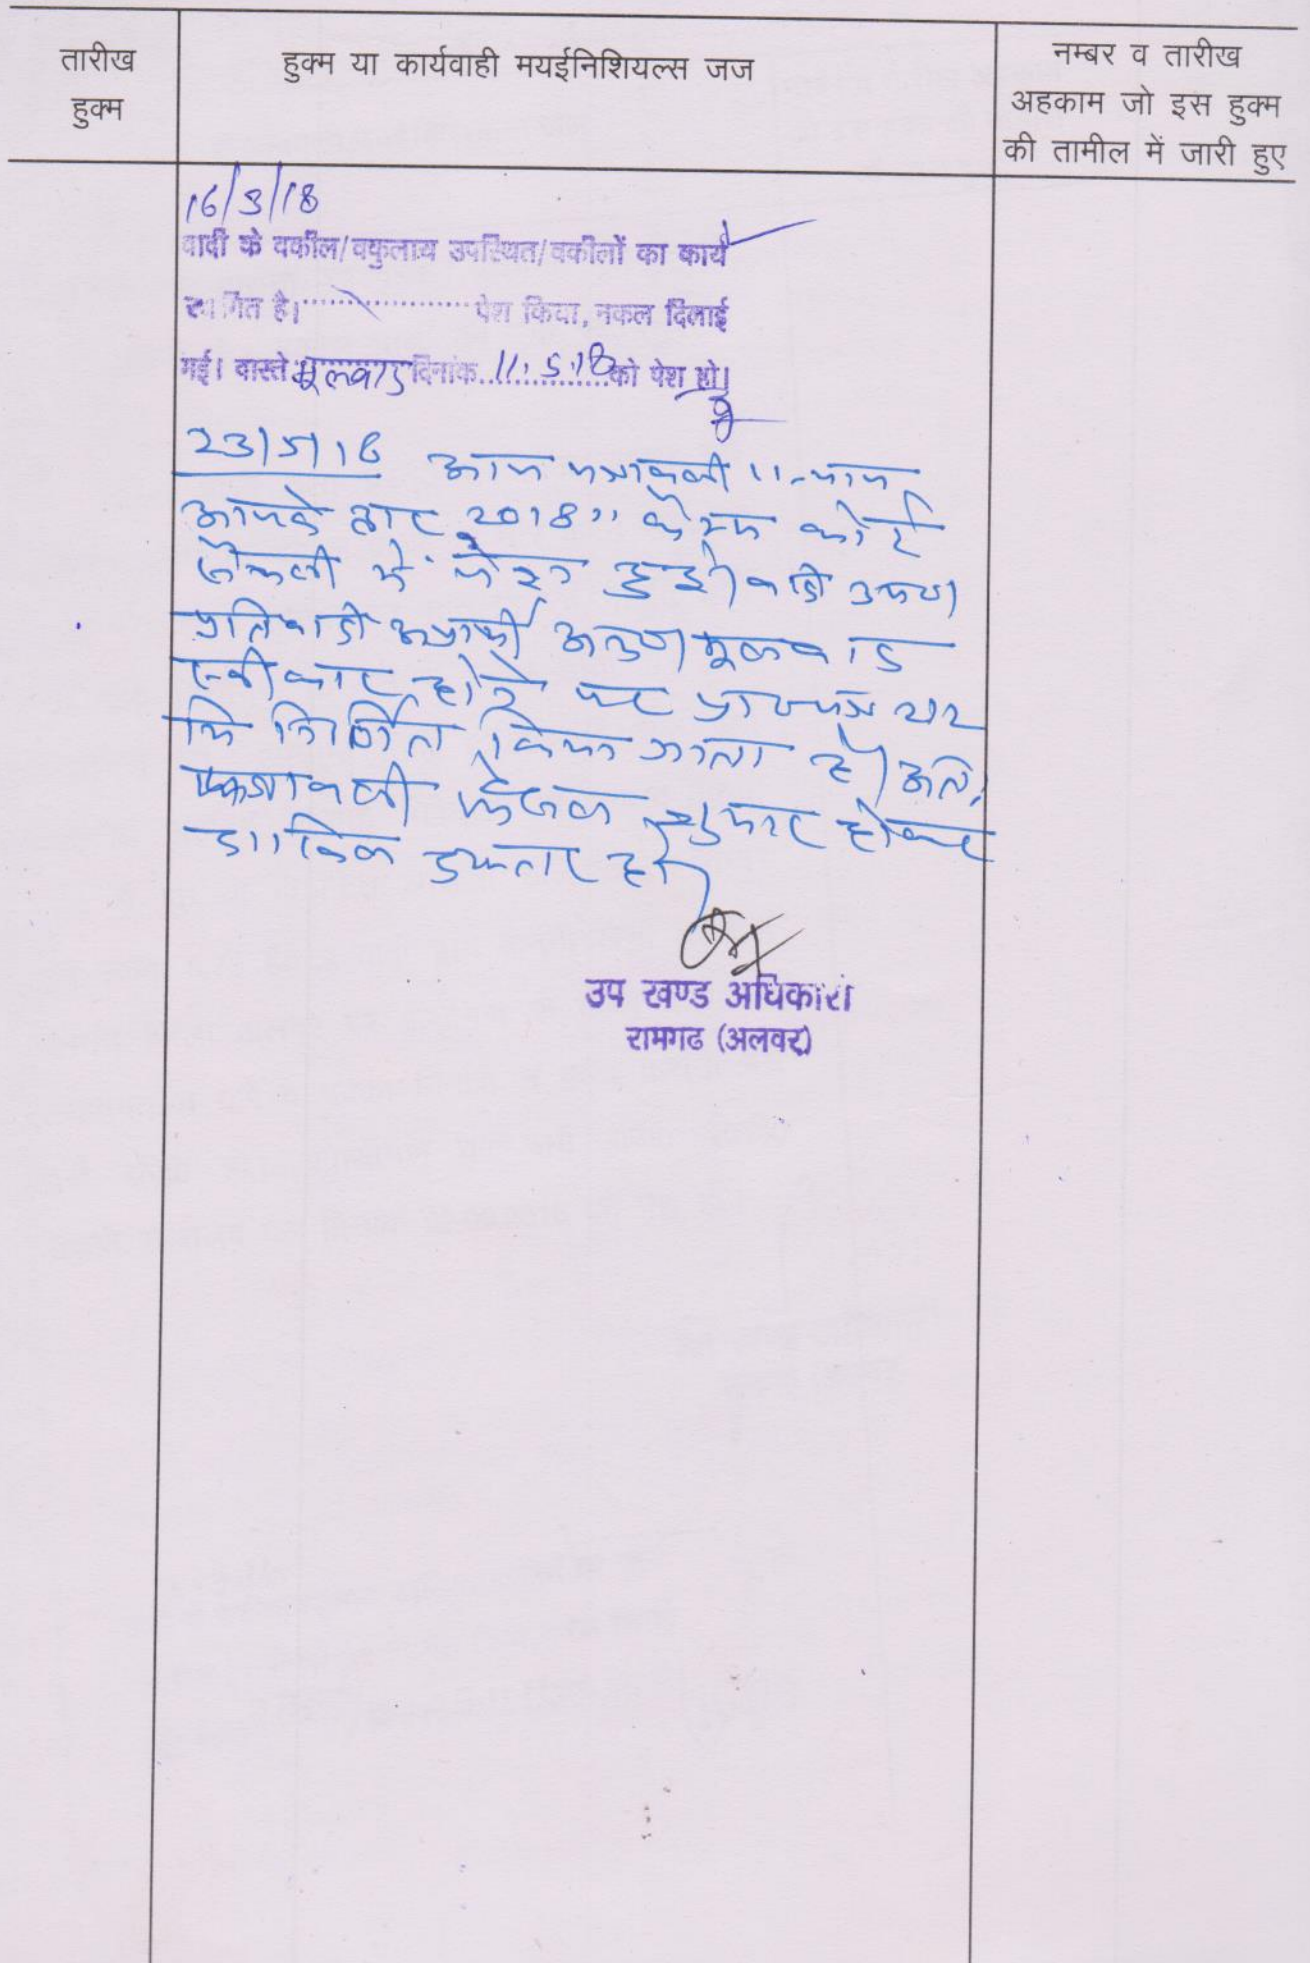 तारीख
हुक्म
हुक्म या कार्यवाही मयईनिशियल्स जज
नम्बर व तारीख
अहकाम जो इस हुक्म
की तामील में जारी हुए
16/3/18
वादी के वकील/वकुलाय उपस्थित/वकीलों का कार्य
स्थगित है। .................... पेश किया, नकल दिलाई
गई। वास्ते मूलवाद दिनांक 11.5.18 को पेश हो।
23/5/18 आज पत्रावली "न्याय
आपके द्वार 2018" कैम्प कोर्ट
में पेश हुई। वादी उपस्थित।
प्रतिवादी मूलवाद
स्वीकार होने पर
निर्णित किया जाता है। अतः
पत्रावली फैसल शुमार होकर
दाखिल दफ्तर हो।
उप खण्ड अधिकारी
रामगढ (अलवर)